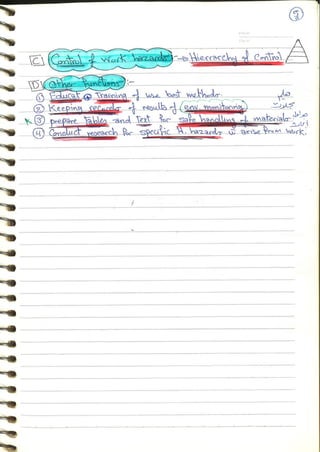 5
[C] Control of work hazards :- → Hierarchy of Control.
[D] Other functions :-
① Educat & Training of use best methods.
② Keeping records of results of (env. monitoring)
③ prepare Tables and Text for safe handling of materials
④ Conduct research for specific H. hazards arise from work.